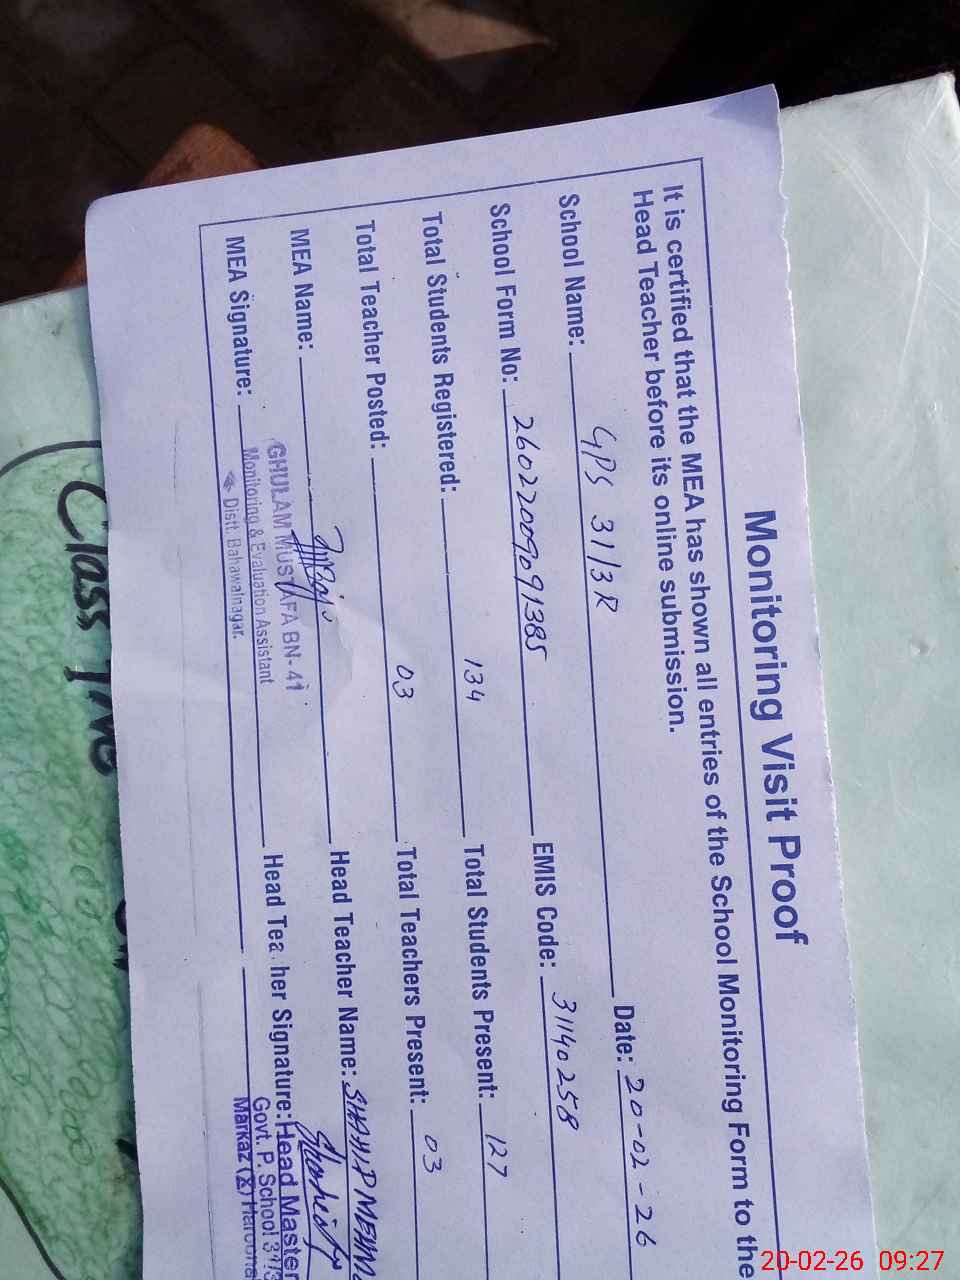 Monitoring Visit Proof
It is certified that the MEA has shown all entries of the School Monitoring Form to the
Head Teacher before its online submission.
School Name: GPS 31/3R Date: 20-02-26
School Form No: 26022009091385 EMIS Code: 31140258
Total Students Registered: 134 Total Students Present: 127
Total Teacher Posted: 03 Total Teachers Present: 03
MEA Name: Head Teacher Name: SHAHID MEHM
MEA Signature: Head Tea her Signature:
GHULAM MUSTAFA BN-41
Monitoring & Evaluation Assistant
Distt. Bahawalnagar.
Head Master
Govt. P. School 31/3
Markaz
Class Two
20-02-26 09:27